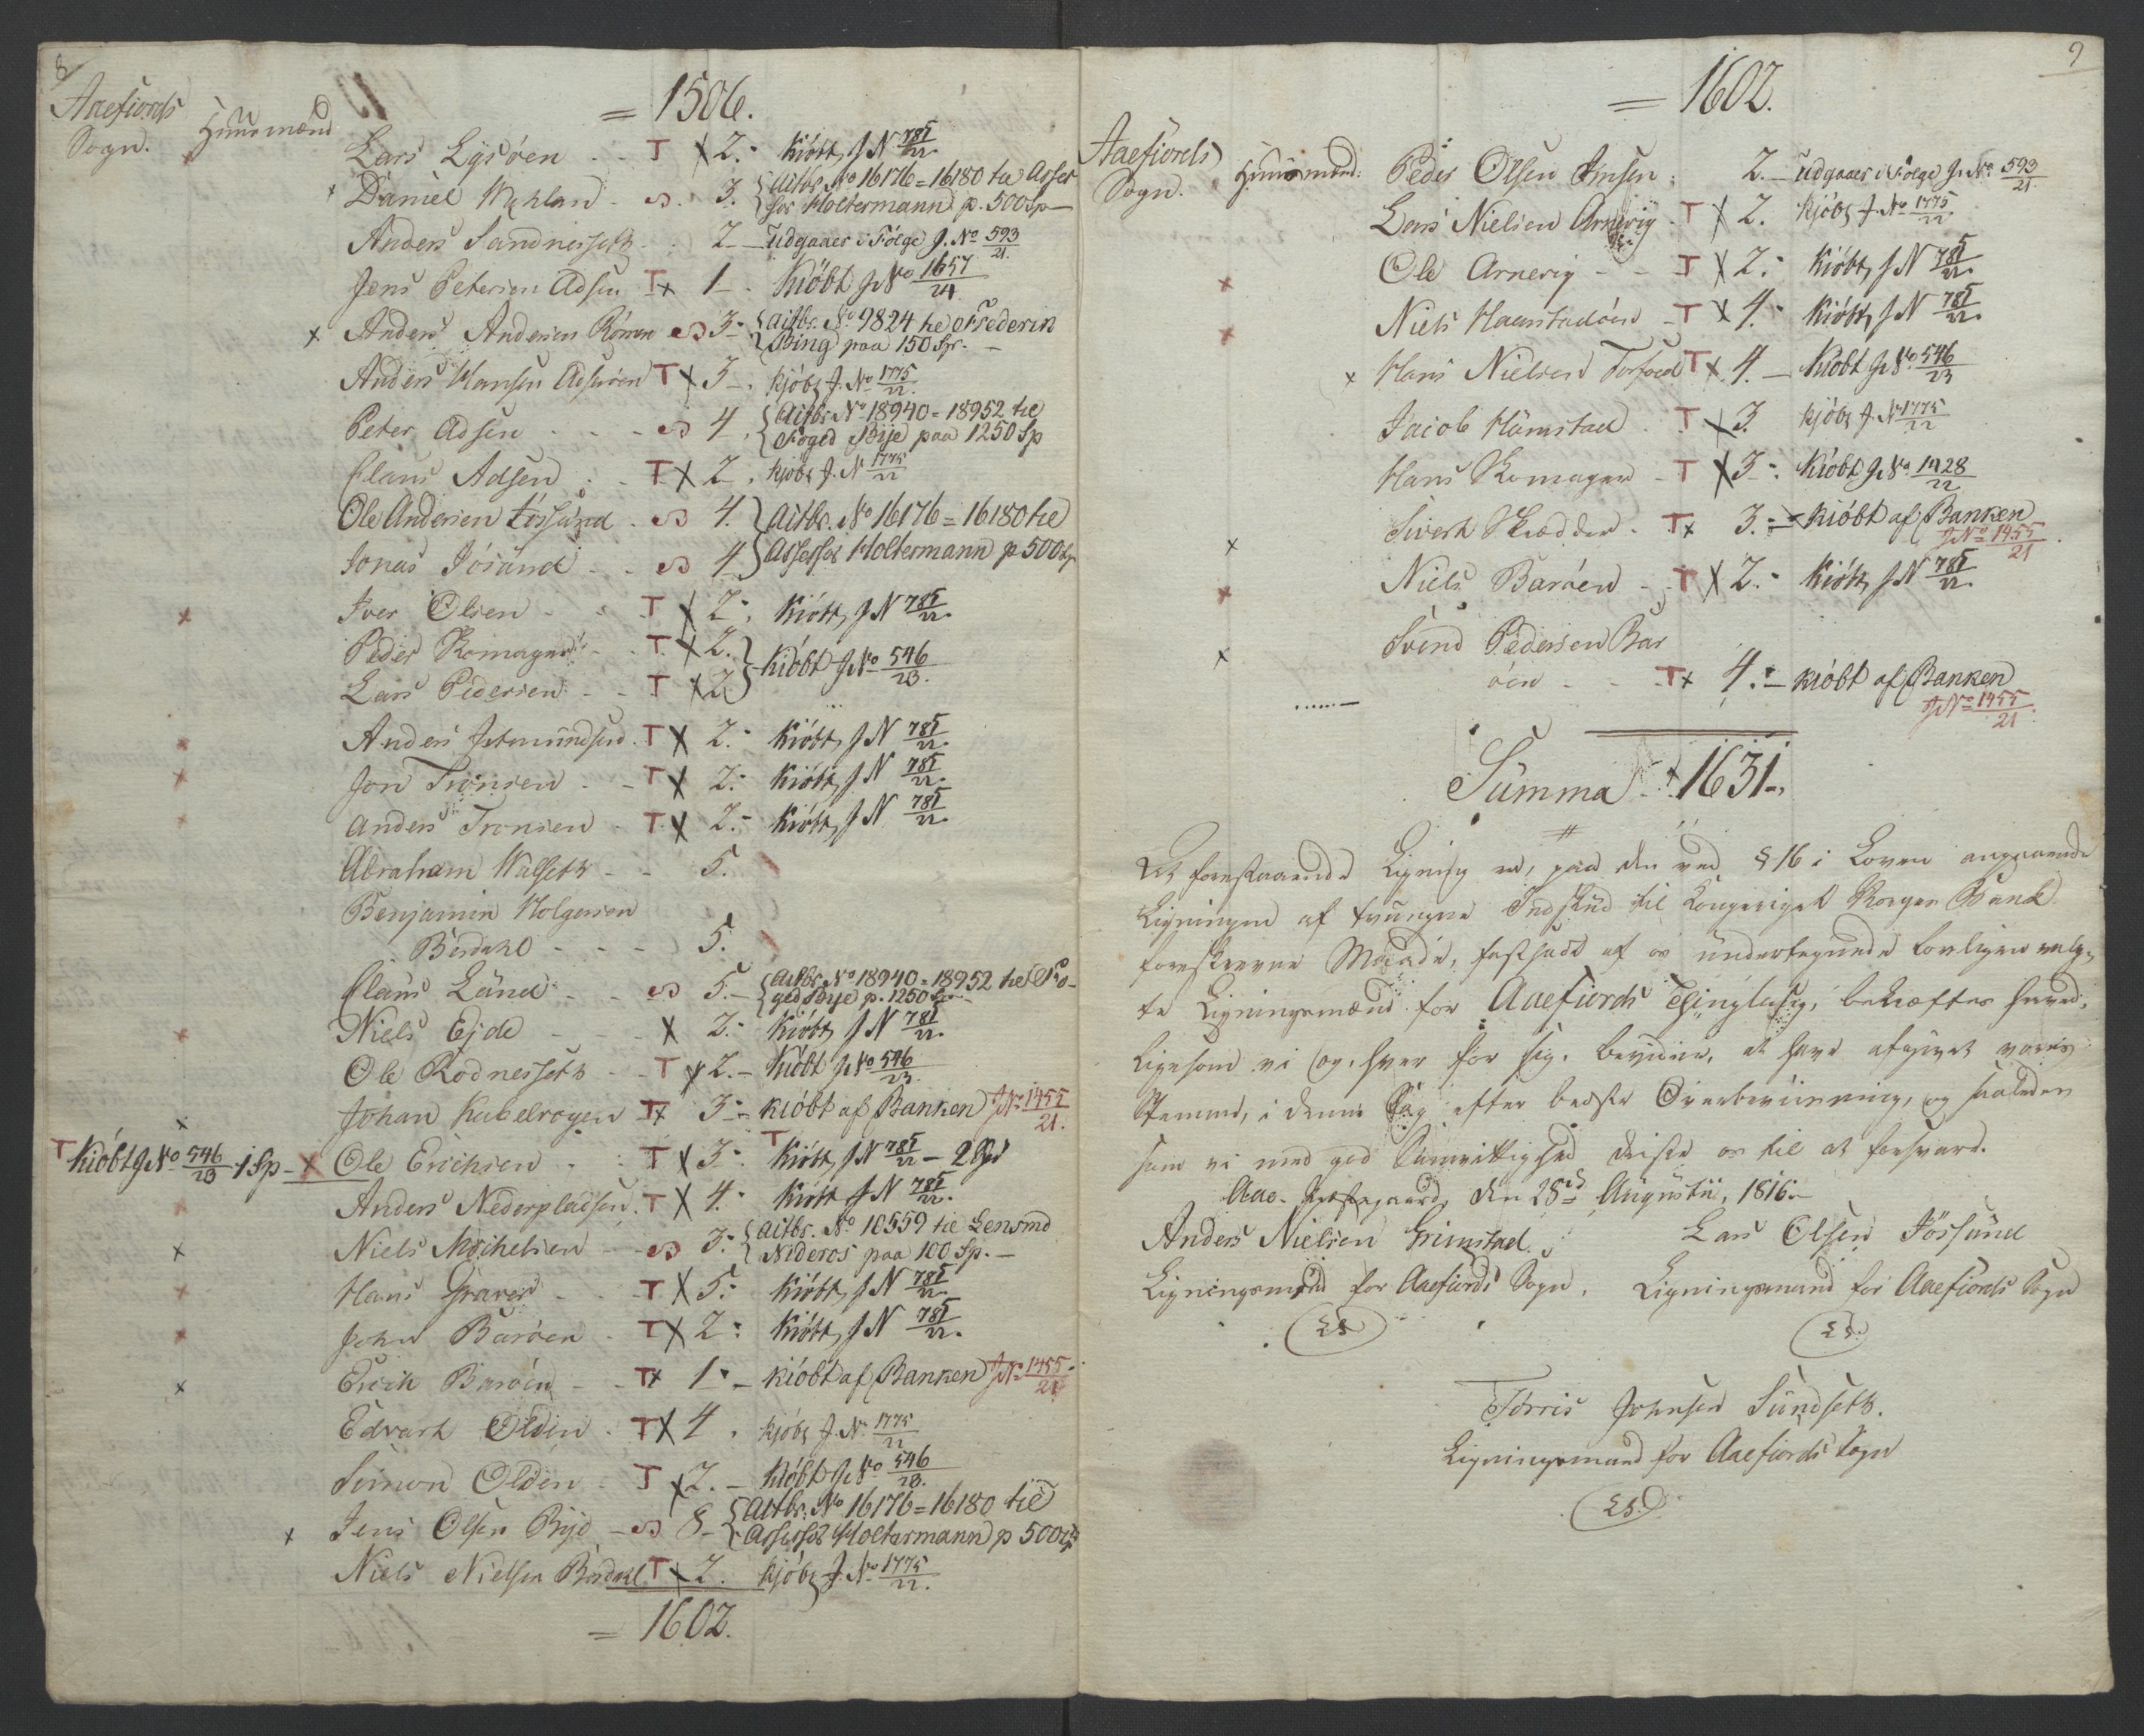 8
Aaefiords
Sogn.
Huusmænd
= 1506.
Lars Lysøen - - T x 2.- kiøbt, J N 785/22.
Daniel Mæhlan - S. 3. {Actbr. No 16176 = 16180 til Asses
sor Holtermann p. 500 Sp -
Anders Sandnesseth - . 2 - Udgaaer i Følge J. No 593/21.
Jens Petersen Adsen Tx 1 - . Kiøbt J No 1657/24
x Anders Andersen S 3 - {Actbr. No 9824 til Frederik
Bing paa 150 Spr. -
Anders Hansen T x 3 - . kjøbt J. No 1775/22.
Peter Adsen - - - S 4. {Actbr. No 18940 = 18952 til
Foged Bije paa 1250 Sp
Claus Adsen . - T x 2. kjøbt J. N 1775/22
Ole Andersen Jøssund . S 4. } Actbr. No 16176 = 16180 til
Jonas Jøsund - - S 4 } Assessor Holtermann p 500 Sp
x Iver Olsen - - T x 2 - . kiøbt, J N 785/22.
Peder Komager - - T. x 2. } Kiøbt J No 546/23.
Lars Pedersen - - T x 2 }
x Anders Jetmundsen . T x 2.- kiøbt, J N 785/22.
x Jon Tronsen - - T x 2.- kiøbt, J N 785/22.
x Anders Tronsen - T. x 2.- kiøbt, J N 785/22.
Abraham Walseth - - 5.
Benjamin Holgersen
Børdahl - - - 5.
Claus Lund - - S 5.- {Actbr. No 18940 = 18952 til Fo-
ged Bije p. 1250 Sp -
x Niels Ejde - - x 2.- kiøbt, J N 785/22.
Ole Rødnesseth - - T x 2.- Kiøbt J No 546/23.
x Johan Kabelrogen Tx 3 - - kiøbt af Banken J No 1455/21.
T Kiøbt J No 546/23 1 Sp - x Ole Erichsen - : T x 3 - . T kiøbt, J N 785/22 - 2 Spd
x Anders Nederpladsen . T x 4.- kiøbt J N 785/22.
x Niels Michelsen - S 3.- {Actbr. No 10559 til Lensmd
Nideros paa 100 Sp. -
x Hans Graver - - T x 5.- kiøbt, J N 785/22.
x John Barøen - T x 2 - : kiøbt, J N 785/22.
x Erich Barøen - - Tx 1 - - kiøbt af Banken J No 1455/21
Edvart Olden . T x 4 . kjøbt J. No 1775/22
Simon Olden - T x 2. - Kiøbt J No 546/23.
x Jens Olsen Bye - S 8 - {Actbr. No 16176 = 16180 til
Assessor Holtermann p 500 Sp
Niels Nielsen Børdahl T x 2. kjøbt J. No 1775/22.
= 1602.
9
Aaefiords
Sogn.
Huusmænd:
= 1602.
Peder Olsen : 2. - Udgaaer i Følge J. No 593/21.
Lars Nielsen Arnevig . T x 2. kjøbt J. No 1775/22
x Ole Arnevig - - T x 2.- kiøbt, J N 785/22.
x Niels Hamstadøen - T x 4.- kiøbt, J N 785/22.
x Hans Nielsen T x 4. - Kiøbt J No 546/23
Jacob Hamstad . T x 3 kjøbt J. No 1775/22
Hans Komager - T x 3 - . Kiøbt J No 1428/22
x Sivert Skrædder . Tx 3.- - kiøbt af Banken
J No 1455/21.
x Niels Barøen - - T x 2.- kiøbt, J N 785/22.
x Svend Pedersen Bar
øen - - Tx 4.- - kiøbt af Banken
J No 1455/21.
Summa - 1631 -.
At forestaaende Ligning er, paa den ved § 16 i Loven angaaende
Ligningen af tvungne Indskud til Kongeriget Norges Bank
foreskrevne Maade, fastsadt af os undertegnede lovligen valg-
te Ligningsmænd for Aaefiords Thinglaug, bekræftes herved,
ligesom vi og, hver for sig, bevidne, at have afgivet vores
Stemme, i denne Sag efter bedste Overbeviisning, og saaledes
som vi med god Samvittighed driste os til at forsvare.
Aae Præstegaard, den 28de Augustii, 1816. -
Anders Nielsen Grimstad.
Ligningsmand for Aaefiords Sogn.
LS
Lars Olsen Jøssund
Ligningsmand for Aaefiords Sogn
LS.
Tørris Johnsen Sundseth.
Ligningsmand for Aaefiords Sogn
LS.